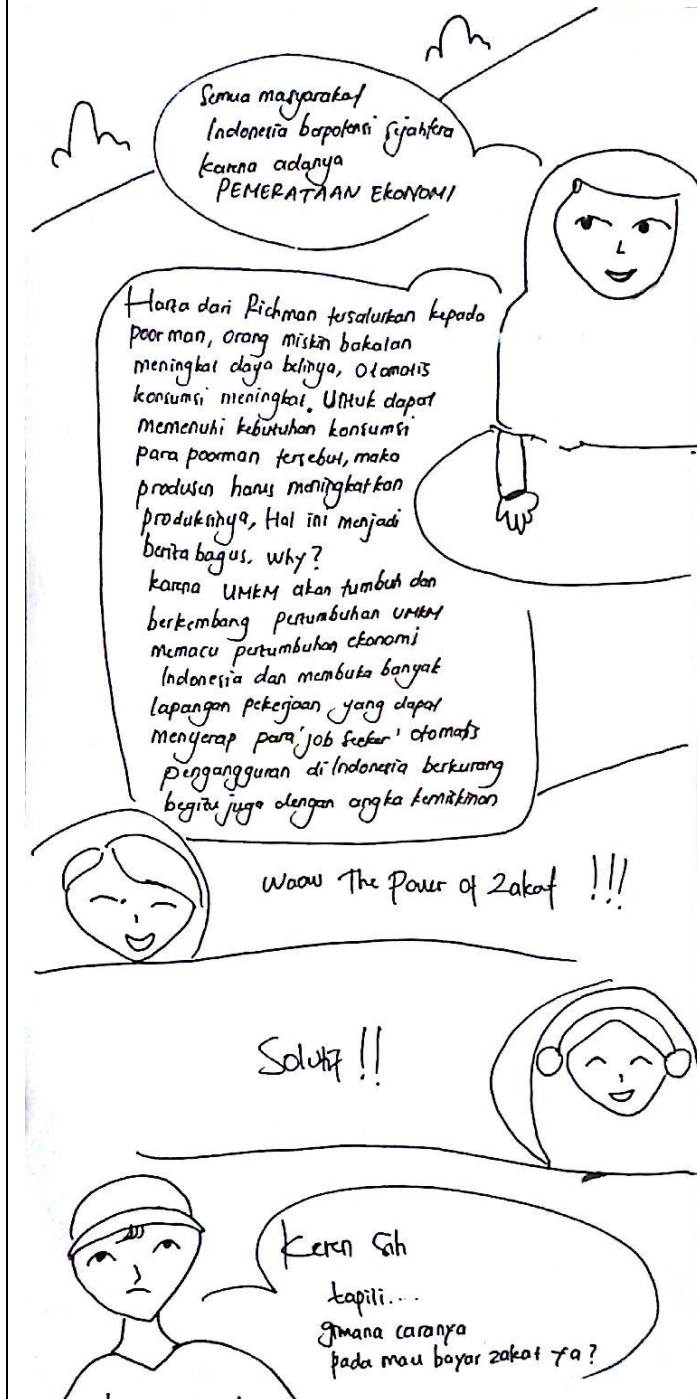 Semua masyarakat
Indonesia berpotensi sejahtera
karna adanya
PEMERATAAN EKONOMI
Harta dari Richman tersalurkan kepada
poorman, orang miskin bakalan
meningkat daya belinya, Otomatis
konsumsi meningkat. Untuk dapat
memenuhi kebutuhan konsumsi
para poorman tersebut, maka
produsen harus meningkatkan
produksinya, Hal ini menjadi
berita bagus. Why?
karna UMKM akan tumbuh dan
berkembang pertumbuhan UMKM
memacu pertumbuhan ekonomi
Indonesia dan membuka banyak
lapangan pekerjaan yang dapat
menyerap para 'job seeker' otomatis
pengangguran di Indonesia berkurang
begitu juga dengan angka kemiskinan
Waow The Power of Zakat !!!
Solutif !!
Keren sih
tapiii...
gimana caranya
pada mau bayar zakat ya?